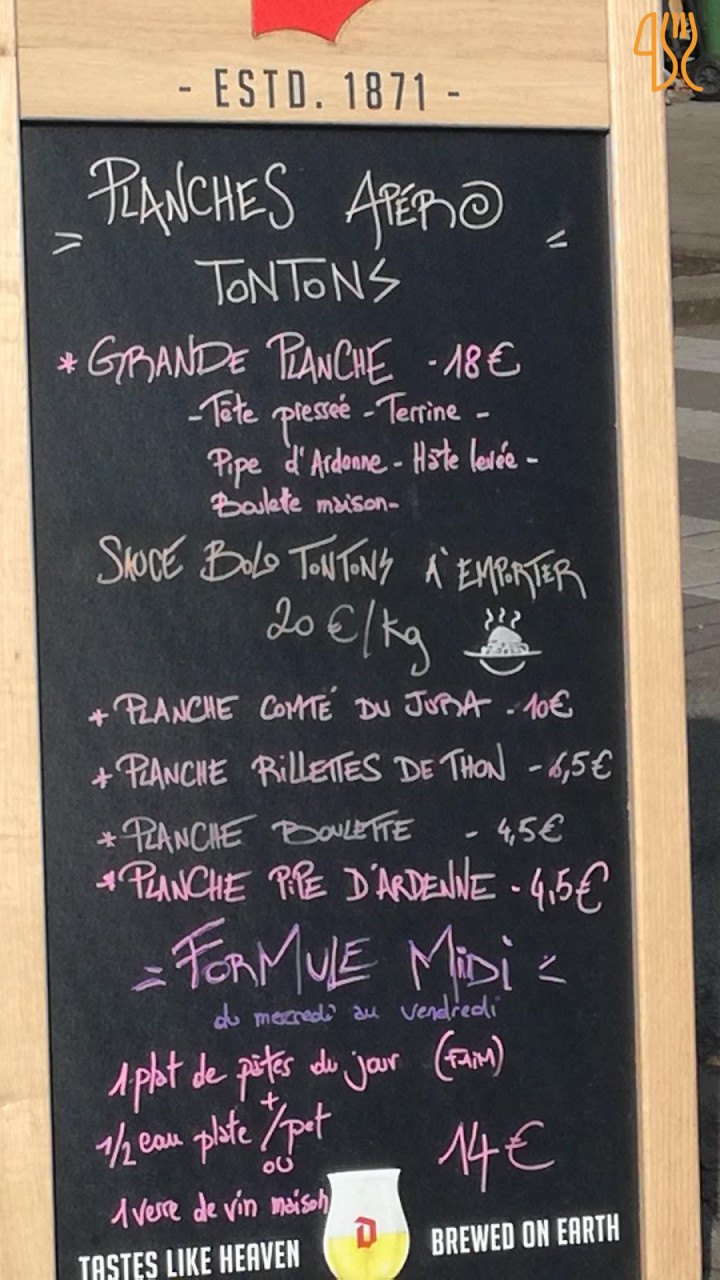 - ESTD. 1871 -
= PLANCHES APÉRO =
TONTONS
* GRANDE PLANCHE - 18€
- Tête presseé - Terrine -
Pipe d'Ardenne - Hâte levée -
Boulette maison -
SAUCE BOLO TONTONS A EMPORTER
20 €/kg
* PLANCHE COMTÉ DU JURA - 10€
* PLANCHE RILLETTES DE THON - 6,5€
* PLANCHE BOULETTE - 4,5€
* PLANCHE PIPE D'ARDENNE - 4,5€
= FORMULE MIDI =
du mercredi au vendredi
1 plat de pâtes du jour (FAIM)
+
1/2 eau plate / pet
ou
14€
1 verre de vin maison
D
TASTES LIKE HEAVEN BREWED ON EARTH